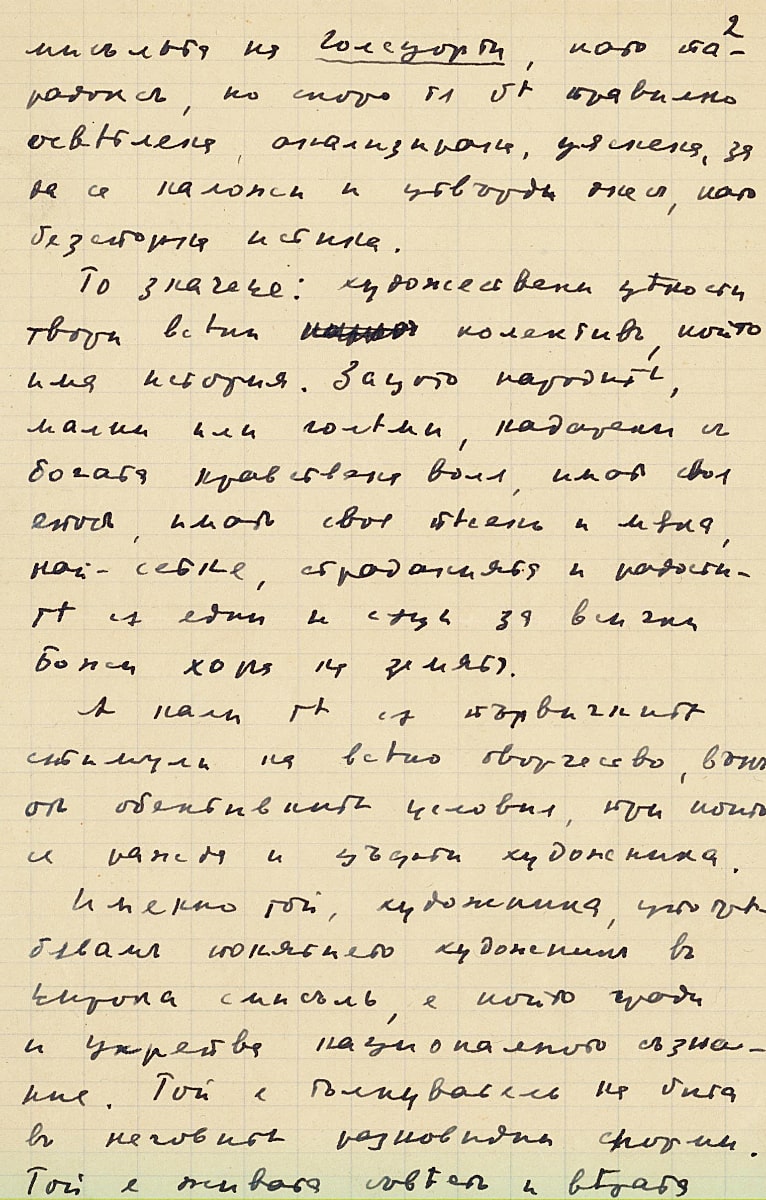 2
мисъльта на Голсуорти, като па-
радоксъ, но скоро тя бѣ правилно
освѣтлена, анализирана, уяснена, за
да се наложи и утвърди днесъ, като
безспорна истина.
То значеше: художествени цѣности
твори всѣки колективъ, който
има история. Защото народитѣ,
малки или голѣми, надарени съ
богата нравствена воля, иматъ своя
епосъ, иматъ своя пѣсень и мѫка,
най-сетне, страданията и радости-
тѣ сѫ едни и сѫщи за всички
Божи хора на земята.
А нали тѣ сѫ първичнитѣ
стимули на всѣко творчество, вънъ
отъ обективнитѣ условия, при които
се ражда и цъфти художника.
Именно той, художника, употрѣ-
бявамъ понятието художникъ въ
широка смисълъ, е който гради
и укрепва националното съзна-
ние. Той е тълкувателъ на бита
въ неговитѣ разновидни форми.
Той е живата совѣсть и вѣрата